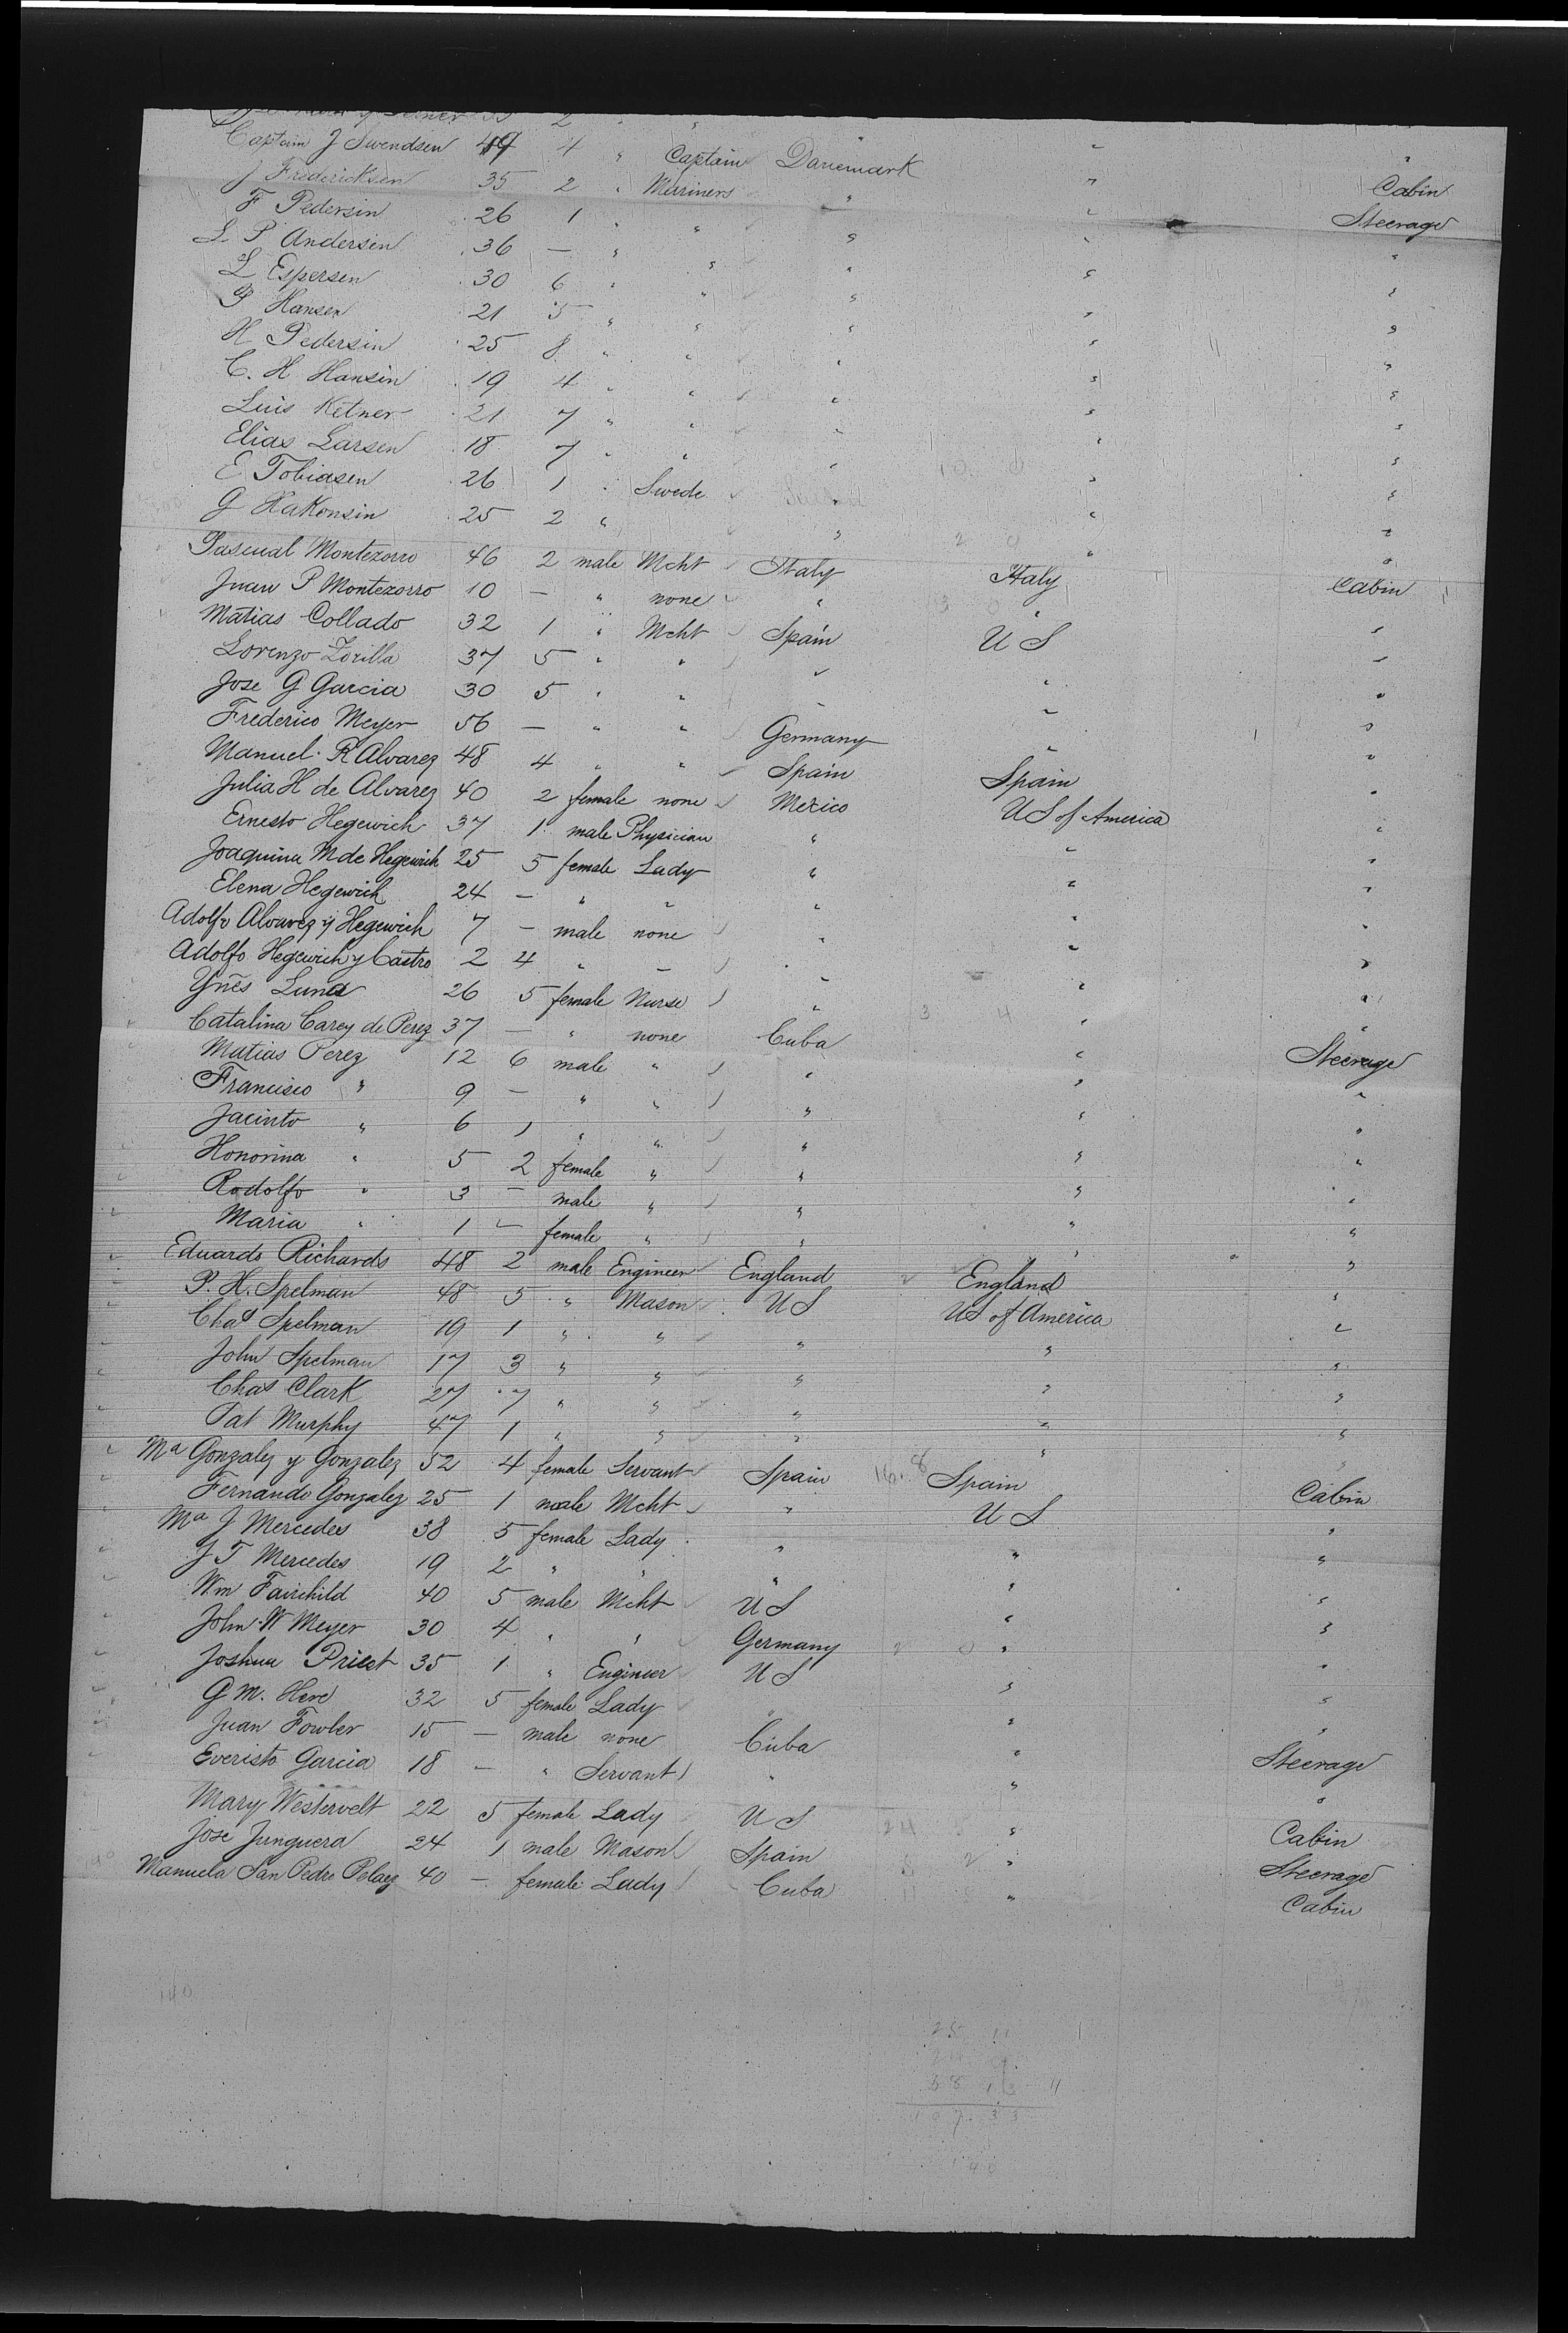 Captain J Swendsen 49 4 " Captain Danemark " "
J Fredericksen 35 2 " Mariners " " Cabin
F Pedersin 26 1 " " " " Steerage
L P Andersin 36 — " " " " "
L Espersen 30 6 " " " " "
P Hansen 21 5 " " " " "
H Pedersin 25 8 " " " " "
C. H Hansin 19 4 " " " " "
Luis Ketner 21 7 " " " " "
Elias Larsen 18 7 " " " " "
E Tobiasen 26 1 " Swede " " "
G HaKonsin 25 2 " " " "
Pascual Montezorro 46 2 male Mcht Italy Italy Cabin
Juan P Montezorro 10 — " none " " "
Matias Collado 32 1 " Mcht Spain U S "
Lorenzo Zorilla 37 5 " " " " "
Jose G Garcia 30 5 " " " " "
Frederico Meyer 56 — " " Germany " "
Manuel R Alvarez 48 4 " " Spain Spain "
Julia H de Alvarez 40 2 female none Mexico US of America "
Ernesto Hegewich 37 1 male Physician " " "
Joaquina M de Hegewich 25 5 female Lady " " "
Elena Hegewich 24 — " " " " "
Adolfo Alvarez y Hegewich 7 — male none " " "
Adolfo Hegewich y Castro 2 4 " " " " "
Ynes Luna 26 5 female Nurse " " "
Catalina Carey de Perez 37 — " none Cuba " Steerage
Matias Perez 12 6 male " " " "
Francisco " 9 — " " " " "
Jacinto " 6 1 " " " " "
Honorina " 5 2 female " " " "
Rodolfo " 3 — male " " " "
Maria " 1 — female " " " "
Eduardo Richards 48 2 male Engineer England England "
P. H. Spelman 48 5 " Mason U S US of America "
Chas Spelman 19 1 " " " " "
John Spelman 17 3 " " " " "
Chas Clark 27 7 " " " " "
Pat Murphy 47 1 " " " " "
Ma Gonzalez y Gonzalez 52 4 female Servant Spain Spain Cabin
Fernando Gonzalez 25 1 male Mcht " U S "
Ma J Mercedes 38 5 female Lady " " "
J T Mercedes 19 2 " " " " "
Wm Fairchild 40 5 male Mcht U S " "
John W Meyer 30 4 " " Germany " "
Joshua Priest 35 1 " Engineer U S " "
G M. Herd 32 5 female Lady " " "
Juan Fowler 15 — male none Cuba " Steerage
Everisto Garcia 18 — " Servant " " "
Mary Westervelt 22 5 female Lady U S " Cabin
Jose Junguera 24 1 male Mason Spain " Steerage
Manuela San Pedro Pelaez 40 — female Lady Cuba " Cabin
140